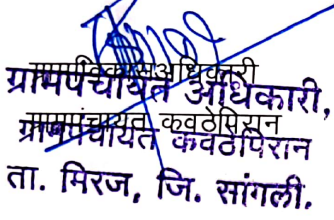 ग्रामविकास अधिकारी
ग्रामपंचायत अधिकारी,
ग्रामपंचायत कवठेपिरान
ग्रामपंचायत कवठेपिरान
ता. मिरज, जि. सांगली.